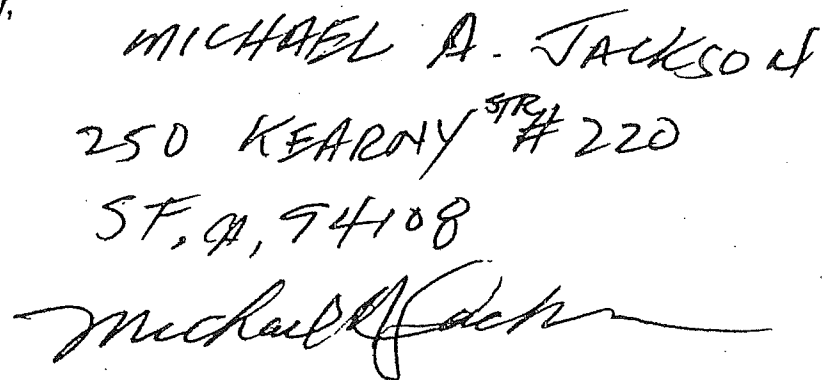 MICHAEL A. JACKSON
250 KEARNY STR # 220
SF, CA, 94108
Michael A Jackson